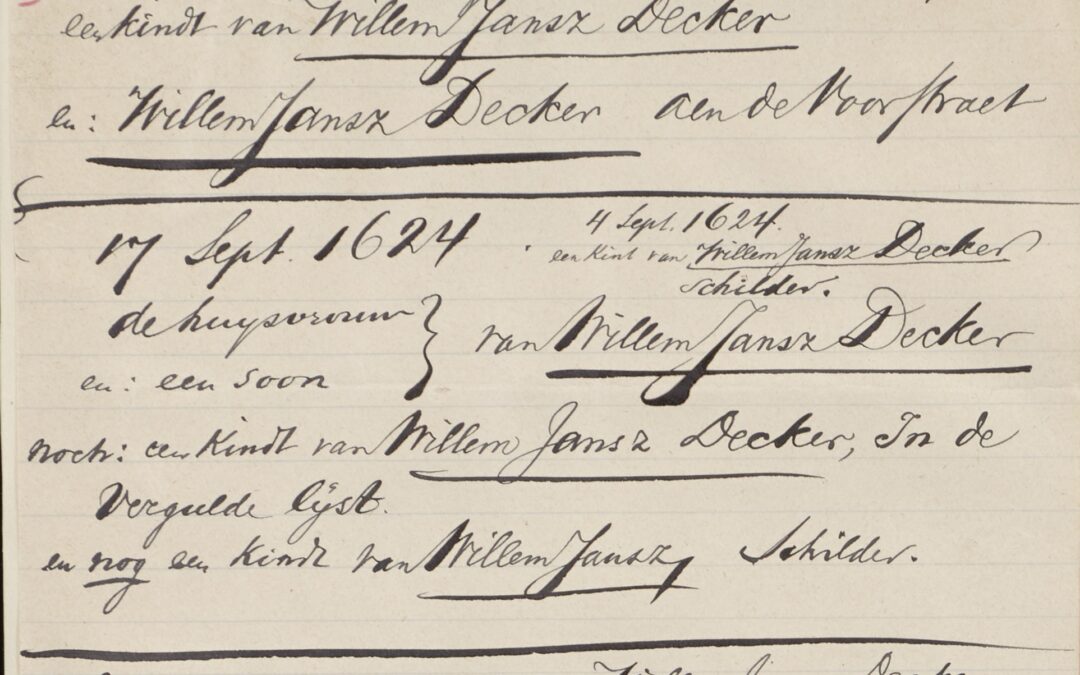 een kindt van Willem Jansz Decker
en: Willem Jansz Decker aen de Voorstraet
17 Sept. 1624
4 Sept. 1624.
een kint van Willem Jansz Decker
schilder.
de huysvrouw
en: een soon
van Willem Jansz Decker
noch: een Kindt van Willem Jansz Decker, In de
Vergulde lijst.
en nog een Kindt van Willem Jansz, Schilder.